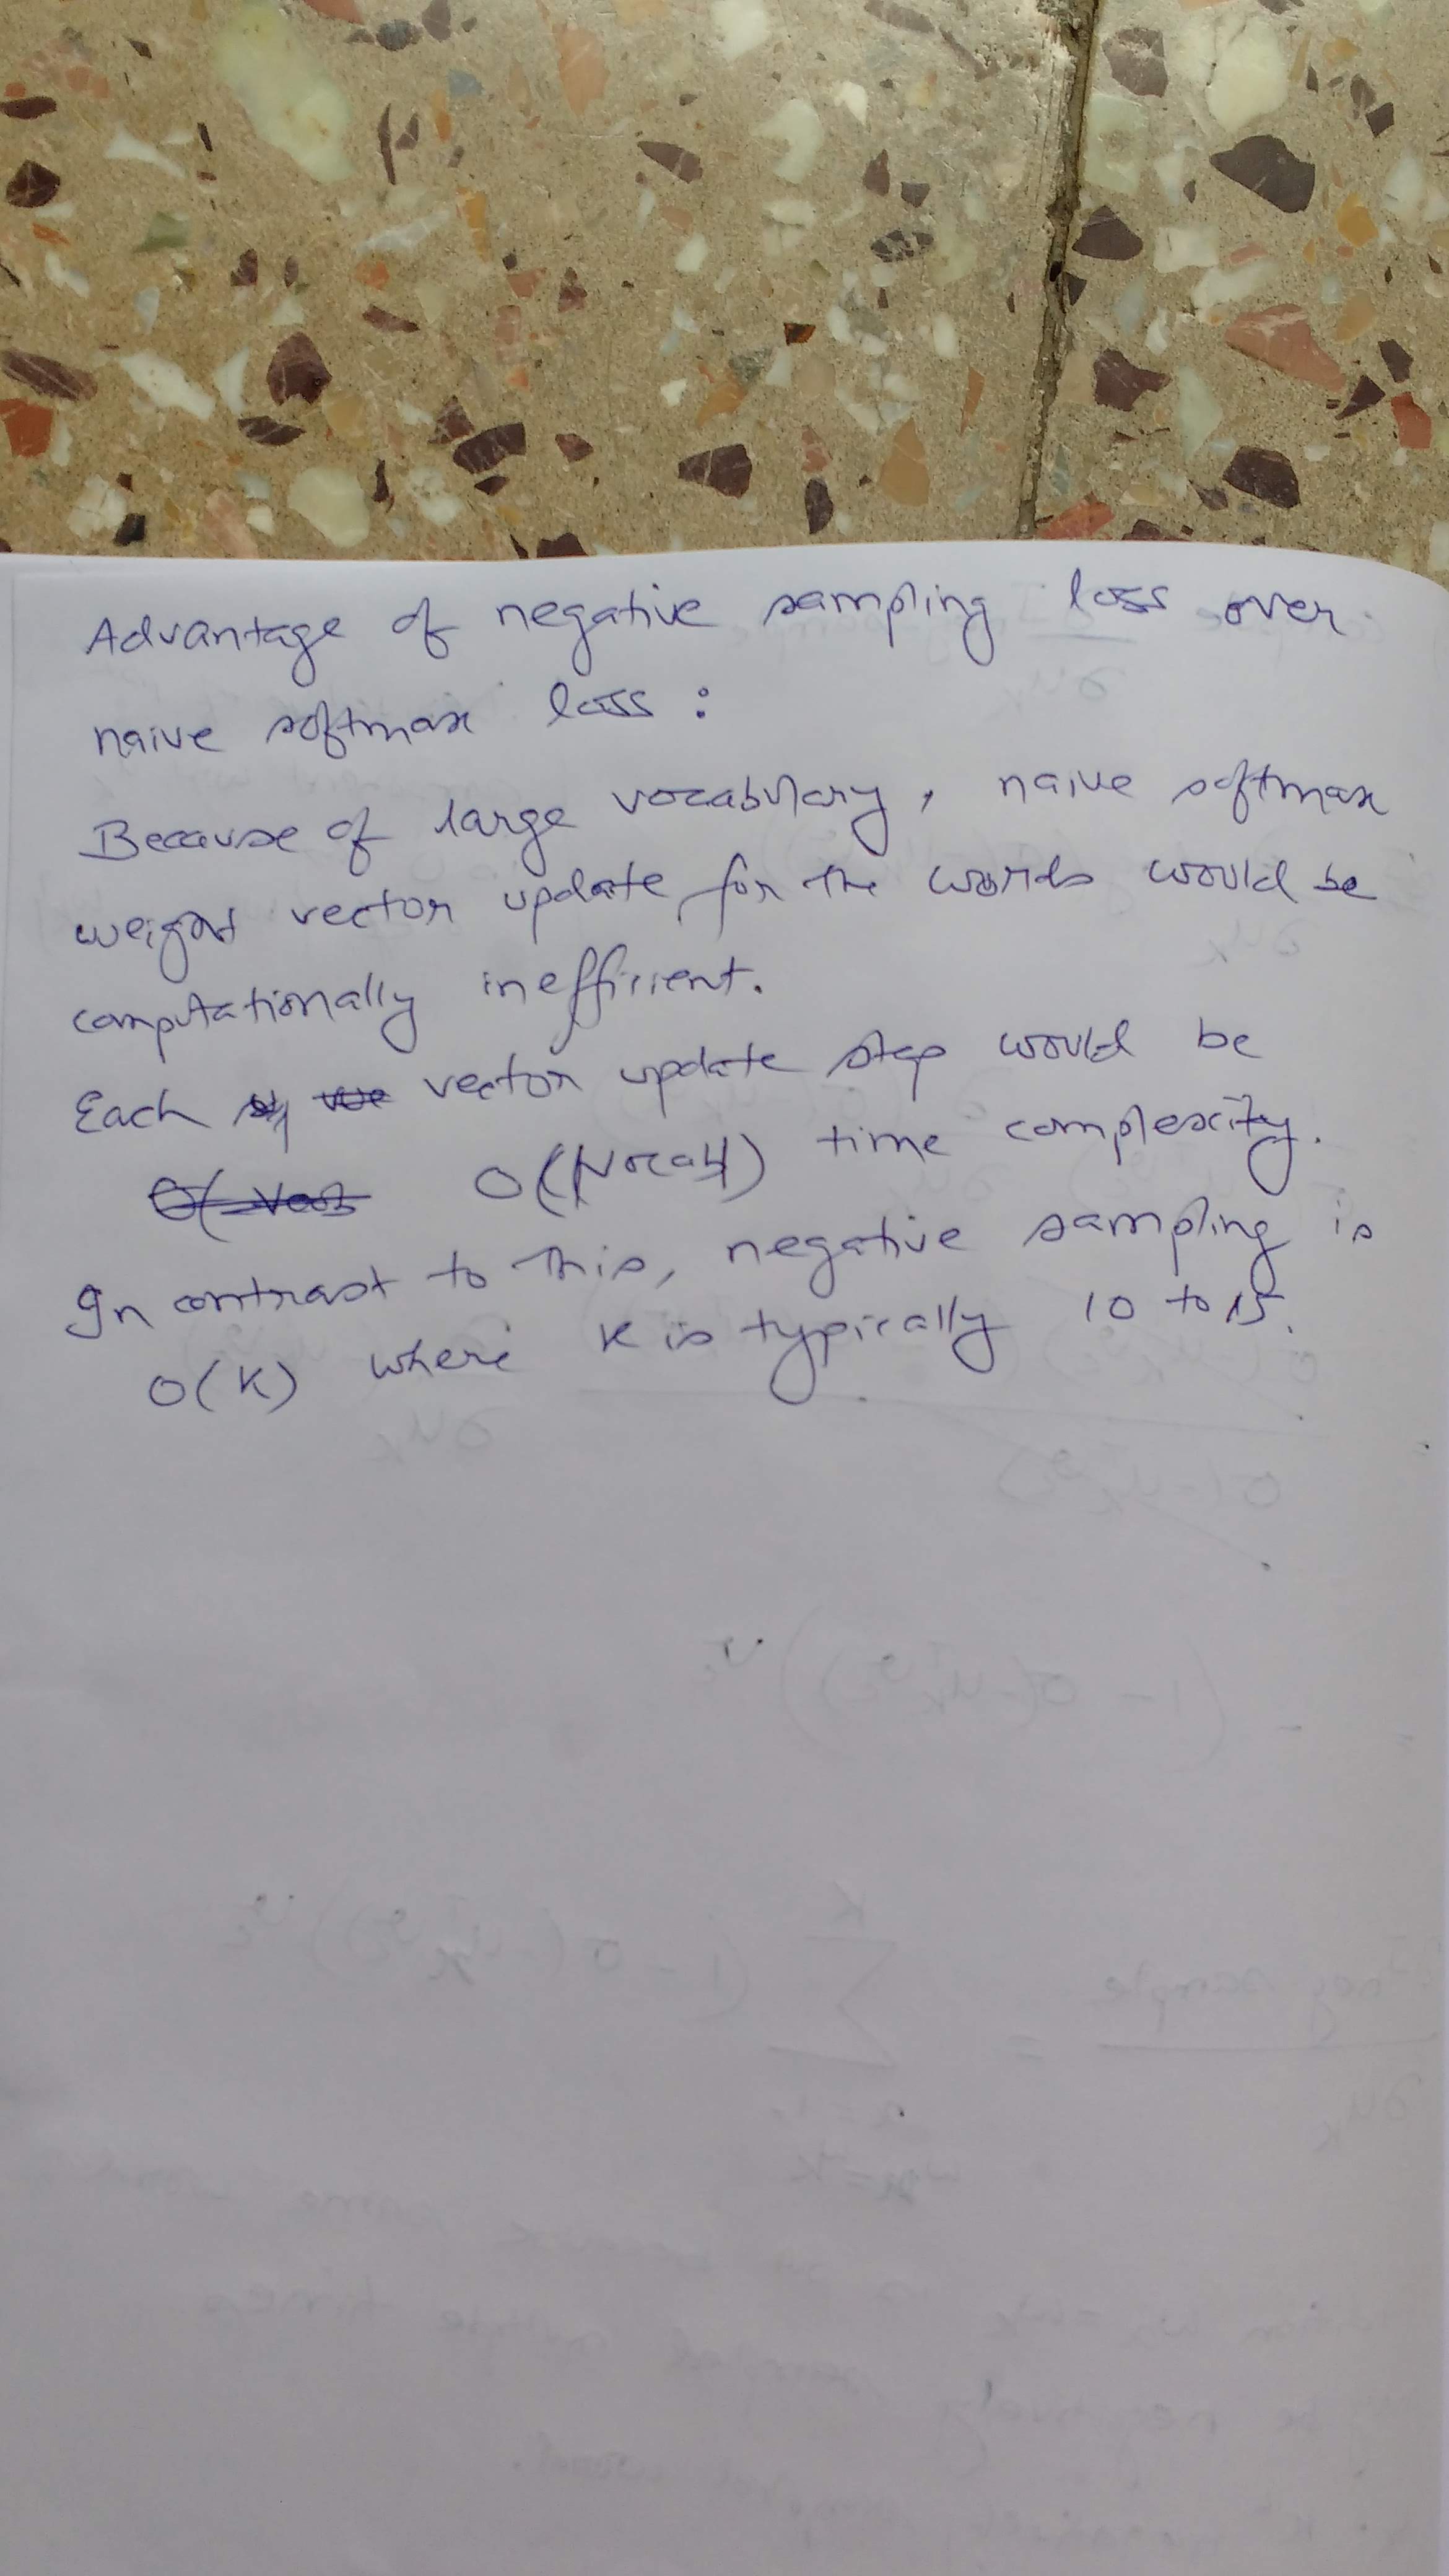 Advantage of negative sampling loss over
naive softmax loss :
Because of large vocabulary, naive softmax
weight vector update for the words would be
computationally inefficient.
Each vector update step would be
O(|Vocab|) time complexity.
In contrast to this, negative sampling is
O(K) where K is typically 10 to 15.